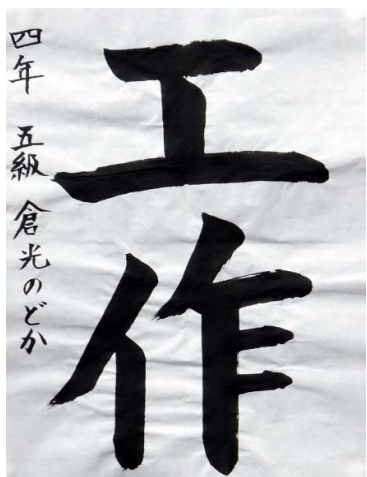 工作
四年 五級 倉光のどか